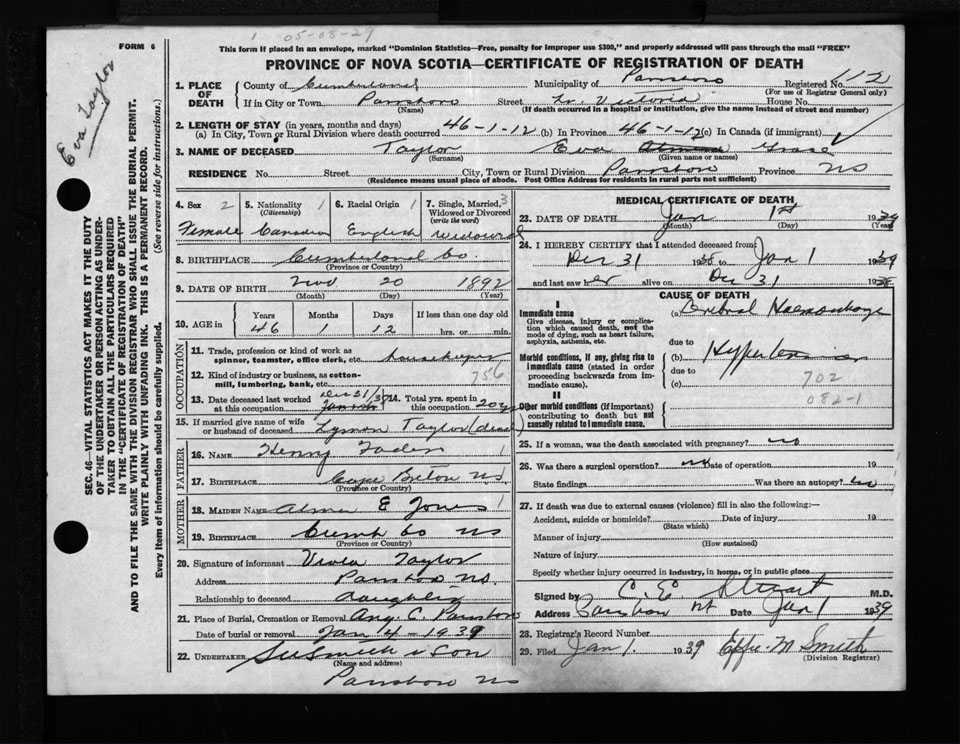 1 05-08-29
FORM 6
This form if placed in an envelope, marked "Dominion Statistics—Free, penalty for improper use $300," and properly addressed will pass through the mail "FREE"
PROVINCE OF NOVA SCOTIA—CERTIFICATE OF REGISTRATION OF DEATH
Eva Taylor
SEC. 46—VITAL STATISTICS ACT MAKES IT THE DUTY
OF THE UNDERTAKER OR PERSON ACTING AS UNDER-
TAKER TO OBTAIN ALL THE PARTICULARS REQUIRED
IN THE "CERTIFICATE OF REGISTRATION OF DEATH"
AND TO FILE THE SAME WITH THE DIVISION REGISTRAR WHO SHALL ISSUE THE BURIAL PERMIT.
WRITE PLAINLY WITH UNFADING INK. THIS IS A PERMANENT RECORD.
Every item of information should be carefully supplied. (See reverse side for instructions.)
1. PLACE OF DEATH County of Cumberland Municipality of Parrsboro Registered No. 112
(For use of Registrar General only)
If in City or Town Parrsboro Street Victoria House No.
(Name) (If death occurred in a hospital or institution, give the name instead of street and number)
2. LENGTH OF STAY (in years, months and days)
(a) In City, Town or Rural Division where death occurred 46-1-12 (b) In Province 46-1-12 (c) In Canada (if immigrant)
3. NAME OF DECEASED Taylor Eva Grace
(Surname) (Given name or names)
RESIDENCE No. Street City, Town or Rural Division Parrsboro Province NS
(Residence means usual place of abode. Post Office Address for residents in rural parts not sufficient)
4. Sex 2 Female
5. Nationality 1 (Citizenship) Canadian
6. Racial Origin 1 English
7. Single, Married, Widowed or Divorced (write the word) 3 Widowed
8. BIRTHPLACE Cumberland Co.
(Province or Country)
9. DATE OF BIRTH Nov 20 1892
(Month) (Day) (Year)
10. AGE in Years 46 Months 1 Days 12 If less than one day old
hrs. or min.
OCCUPATION
11. Trade, profession or kind of work as
spinner, teamster, office clerk, etc. housekeeper
12. Kind of industry or business, as cotton-
mill, lumbering, bank, etc. 756
13. Date deceased last worked
at this occupation Dec 31/38
14. Total yrs. spent in
this occupation 20 yrs
15. If married give name of wife
or husband of deceased Lyman Taylor (dead)
FATHER
16. NAME Henry Fader 1
17. BIRTHPLACE Cape Breton NS.
(Province or Country)
MOTHER
18. MAIDEN NAME Alma E Jones 1
19. BIRTHPLACE Cumb Co NS
(Province or Country)
20. Signature of informant Viola Taylor
Address Parrsboro NS.
Relationship to deceased daughter
21. Place of Burial, Cremation or Removal Ang. C. Parrsboro
Date of burial or removal Jan 4 - 1939
22. UNDERTAKER Smith & Son
(Name and address)
Parrsboro NS
MEDICAL CERTIFICATE OF DEATH
23. DATE OF DEATH Jan 1st 1939
(Month) (Day) (Year)
24. I HEREBY CERTIFY that I attended deceased from
Dec 31 1938 to Jan 1 1939
and last saw her alive on Dec 31 1938
CAUSE OF DEATH
I
Immediate cause (a) Cerebral Haemorrhage
Give disease, injury or complica-
tion which caused death, not the
mode of dying, such as heart failure,
asphyxia, asthenia, etc.
due to
Morbid conditions, if any, giving rise to
immediate cause (stated in order
proceeding backwards from im-
mediate cause). (b) Hypertension
due to
(c) 702
082-1
II
Other morbid conditions (if important)
contributing to death but not
causally related to immediate cause.
25. If a woman, was the death associated with pregnancy? no
26. Was there a surgical operation? no Date of operation 19
State findings Was there an autopsy? no
27. If death was due to external causes (violence) fill in also the following:—
Accident, suicide or homicide? Date of injury 19
(State which)
Manner of injury
(How sustained)
Nature of injury
Specify whether injury occurred in industry, in home, or in public place
Signed by C. E. Stuart M.D.
Address Parrsboro NS Date Jan 1 1939
28. Registrar's Record Number
29. Filed Jan 1. 1939 Effie M Smith
(Division Registrar)